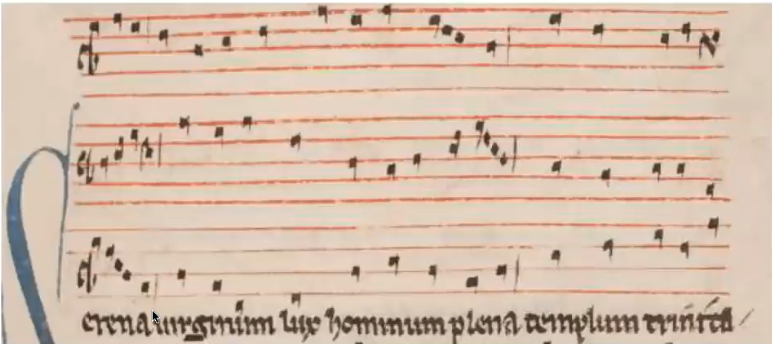 Serena uirginum lux hominum plena templum trinita